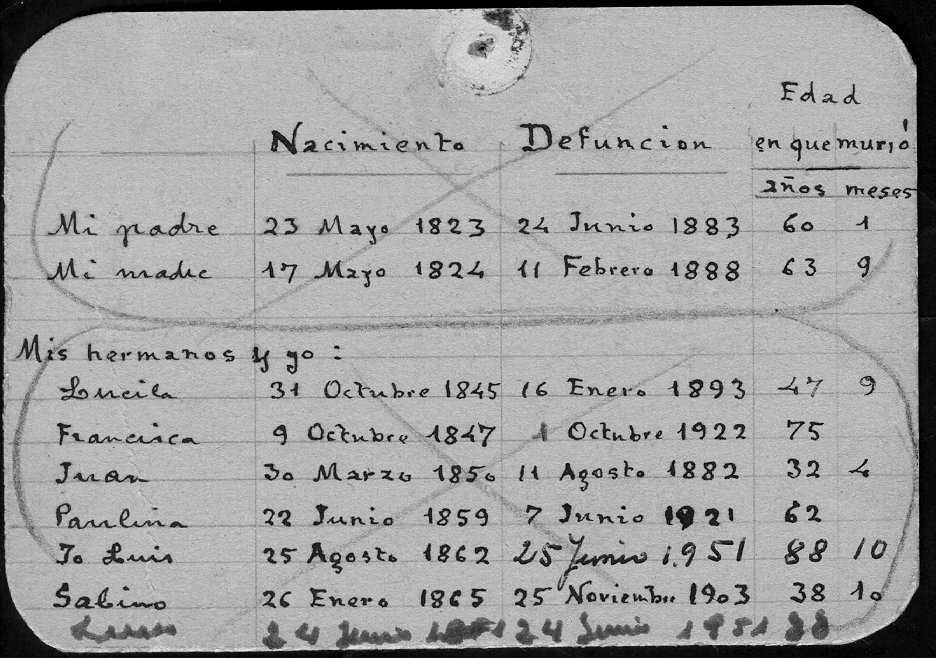 Edad
Nacimiento Defuncion en que murió
años meses
Mi padre 23 Mayo 1823 24 Junio 1883 60 1
Mi madre 17 Mayo 1824 11 Febrero 1888 63 9
Mis hermanos y yo :
Lucila 31 Octubre 1845 16 Enero 1893 47 9
Francisca 9 Octubre 1847 1 Octubre 1922 75
Juan 30 Marzo 1850 11 Agosto 1882 32 4
Paulina 22 Junio 1859 7 Junio 1921 62
Yo Luis 25 Agosto 1862 25 Junio 1951 88 10
Sabino 26 Enero 1865 25 Noviembre 1903 38 10
24 Junio 24 Junio 1951 88